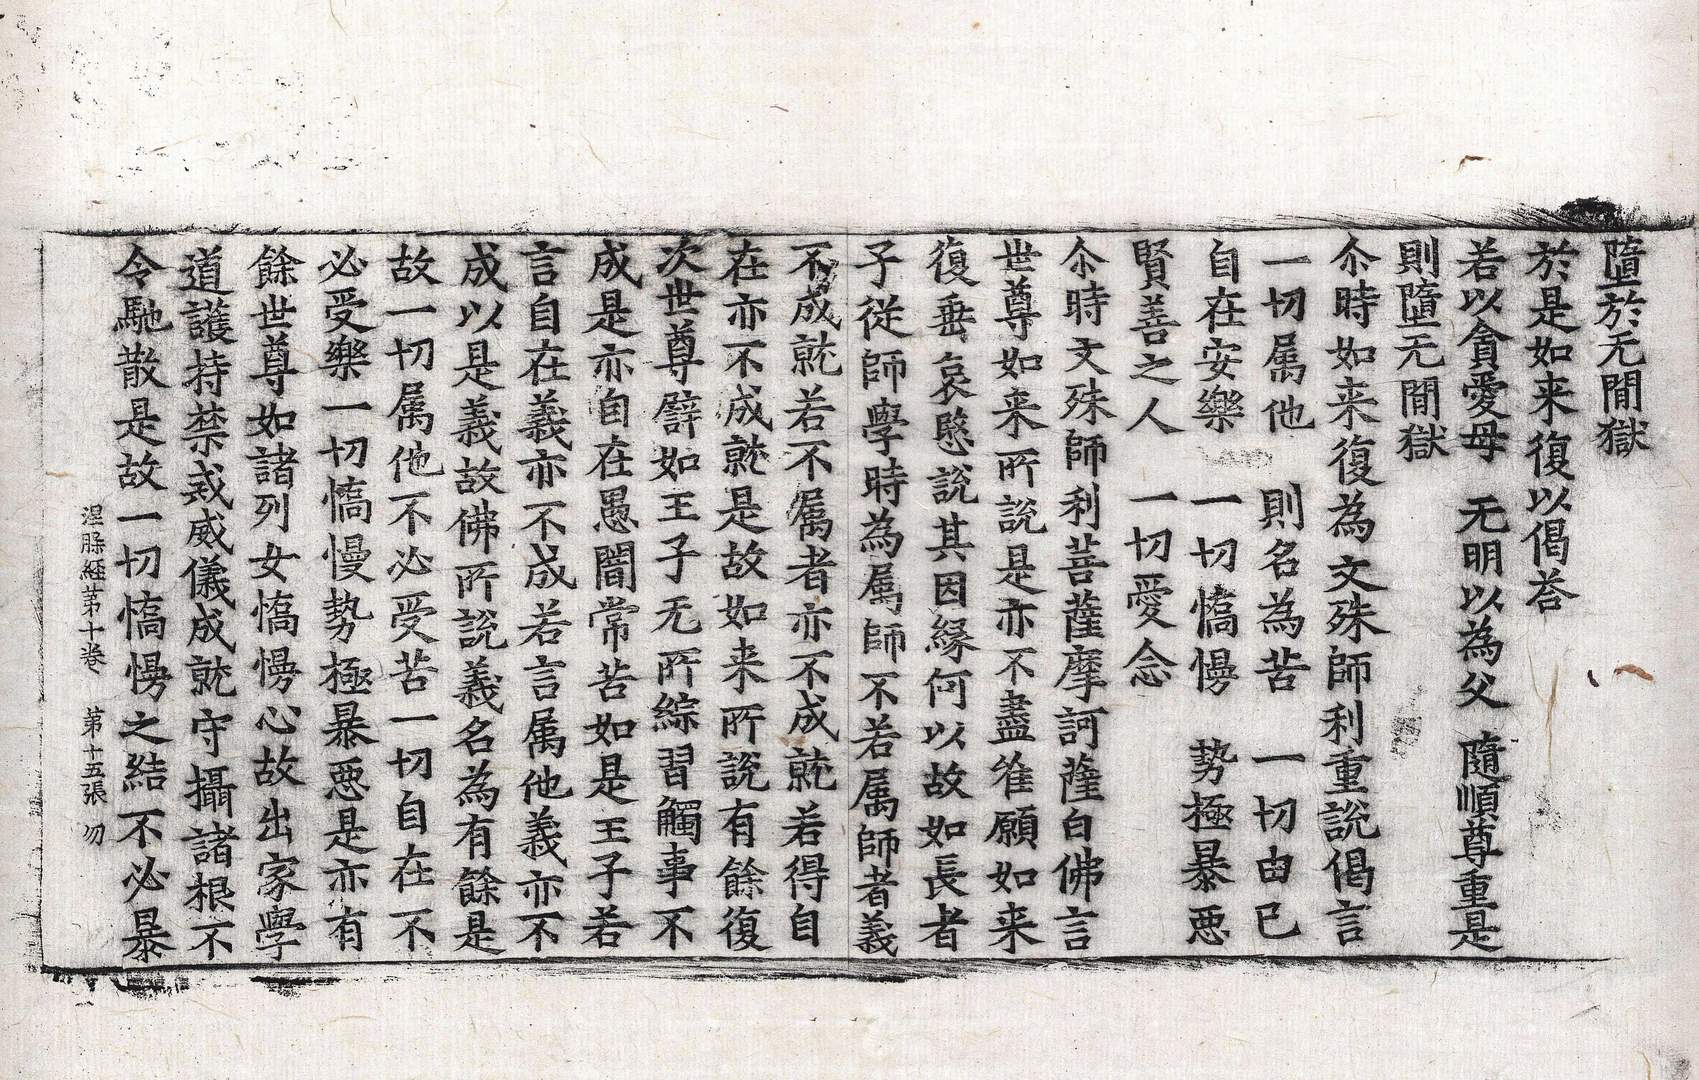 墮於无間獄
於是如来復以偈荅
若以貪愛母　无明以為父　隨順尊重是
則墮无間獄
尒時如来復為文殊師利重說偈言
一切属他　則名為苦　一切由已
自在安樂　一切憍慢　勢極暴惡
賢善之人　一切愛念
尒時文殊師利菩薩摩訶薩白佛言
世尊如来所說是亦不盡唯願如来
復垂哀愍說其因緣何以故如長者
子從師學時為属師不若属師者義
不成就若不属者亦不成就若得自
在亦不成就是故如来所說有餘復
次世尊譬如王子无所綜習觸事不
成是亦自在愚闇常苦如是王子若
言自在義亦不成若言属他義亦不
成以是義故佛所說義名為有餘是
故一切属他不必受苦一切自在不
必受樂一切憍慢勢極暴惡是亦有
餘世尊如諸列女憍慢心故出家學
道護持禁戒威儀成就守攝諸根不
令馳散是故一切憍慢之結不必暴
涅槃経苐十卷　第十五張　勿